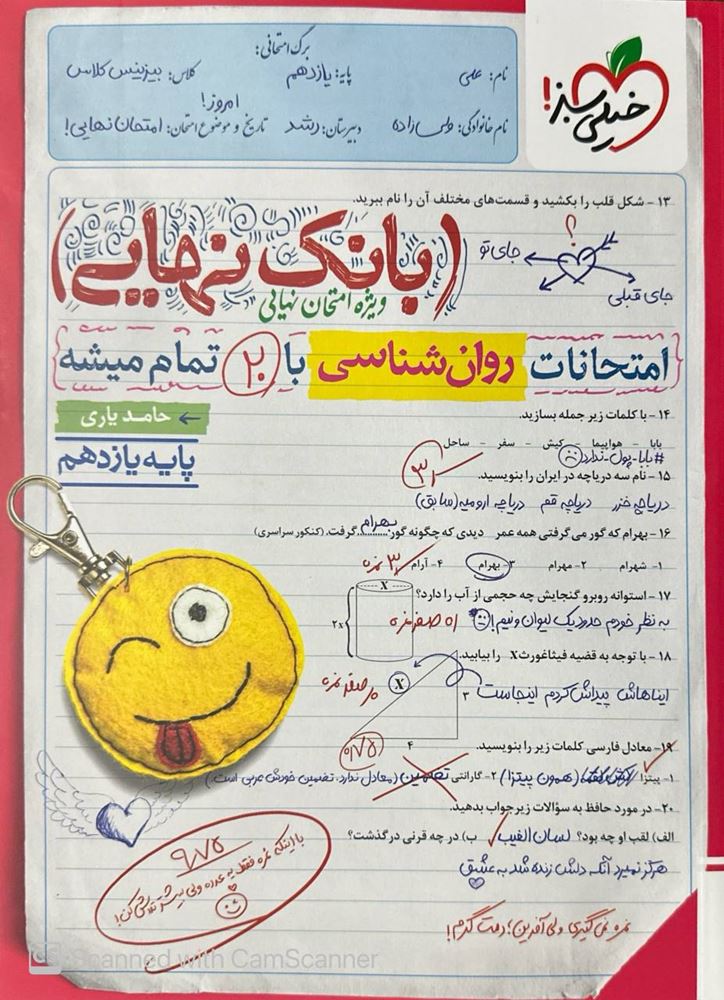 برگ امتحانی:
نام: علی
پایه: یازدهم
کلاس: بیزینس کلاس
نام خانوادگی: ولی‌زاده
دبیرستان: رشد
تاریخ و موضوع امتحان: امروز! امتحان نهایی!
خیلی سبز!
۱۳ - شکل قلب را بکشید و قسمت‌های مختلف آن را نام ببرید.
؟
جای تو
جای قبلی
(بانک نهایی)
ویژه امتحان نهایی
امتحانات روان‌شناسی با ۲۰ تمام میشه
حامد یاری
پایه یازدهم
۱۴ - با کلمات زیر جمله بسازید.
بابا - هواپیما - کیش - سفر - ساحل
#بابا-پول-ندارد
۱۵ - نام سه دریاچه در ایران را بنویسید.
دریاچه خزر دریاچه قم دریاچه ارومیه (سابق)
۱۶ - بهرام که گور می‌گرفتی همه عمر دیدی که چگونه گور بهرام گرفت. (کنکور سراسری)
۱- شهرام ۲- مهرام ۳- بهرام ۴- آرام
۱۷ - استوانه روبرو گنجایش چه حجمی از آب را دارد؟
X
2x
به نظر خودم حدود یک لیوان و نیم!
۱۸ - با توجه به قضیه فیثاغورث X را بیابید.
ایناهاش پیداش کردم اینجاست
X
۳
۴
۰/۷۵
۱۹- معادل فارسی کلمات زیر را بنویسید.
۱- پیتزا (همون پیتزا) ۲- گارانتی تضمین (معادل ندارد. تضمین خودش عربی است.)
۲۰- در مورد حافظ به سؤالات زیر جواب بدهید.
الف) لقب او چه بود؟ لسان الغیب ب) در چه قرنی درگذشت؟
هرگز نمیرد آنکه دلش زنده شد به عشق
۹/۷۵
با اینکه نمره فقط یه عدده ولی بیشتر تلاش کن!
نمره نمی‌گیری ولی آفرین؛ دمت گرم!
CS Scanned with CamScanner